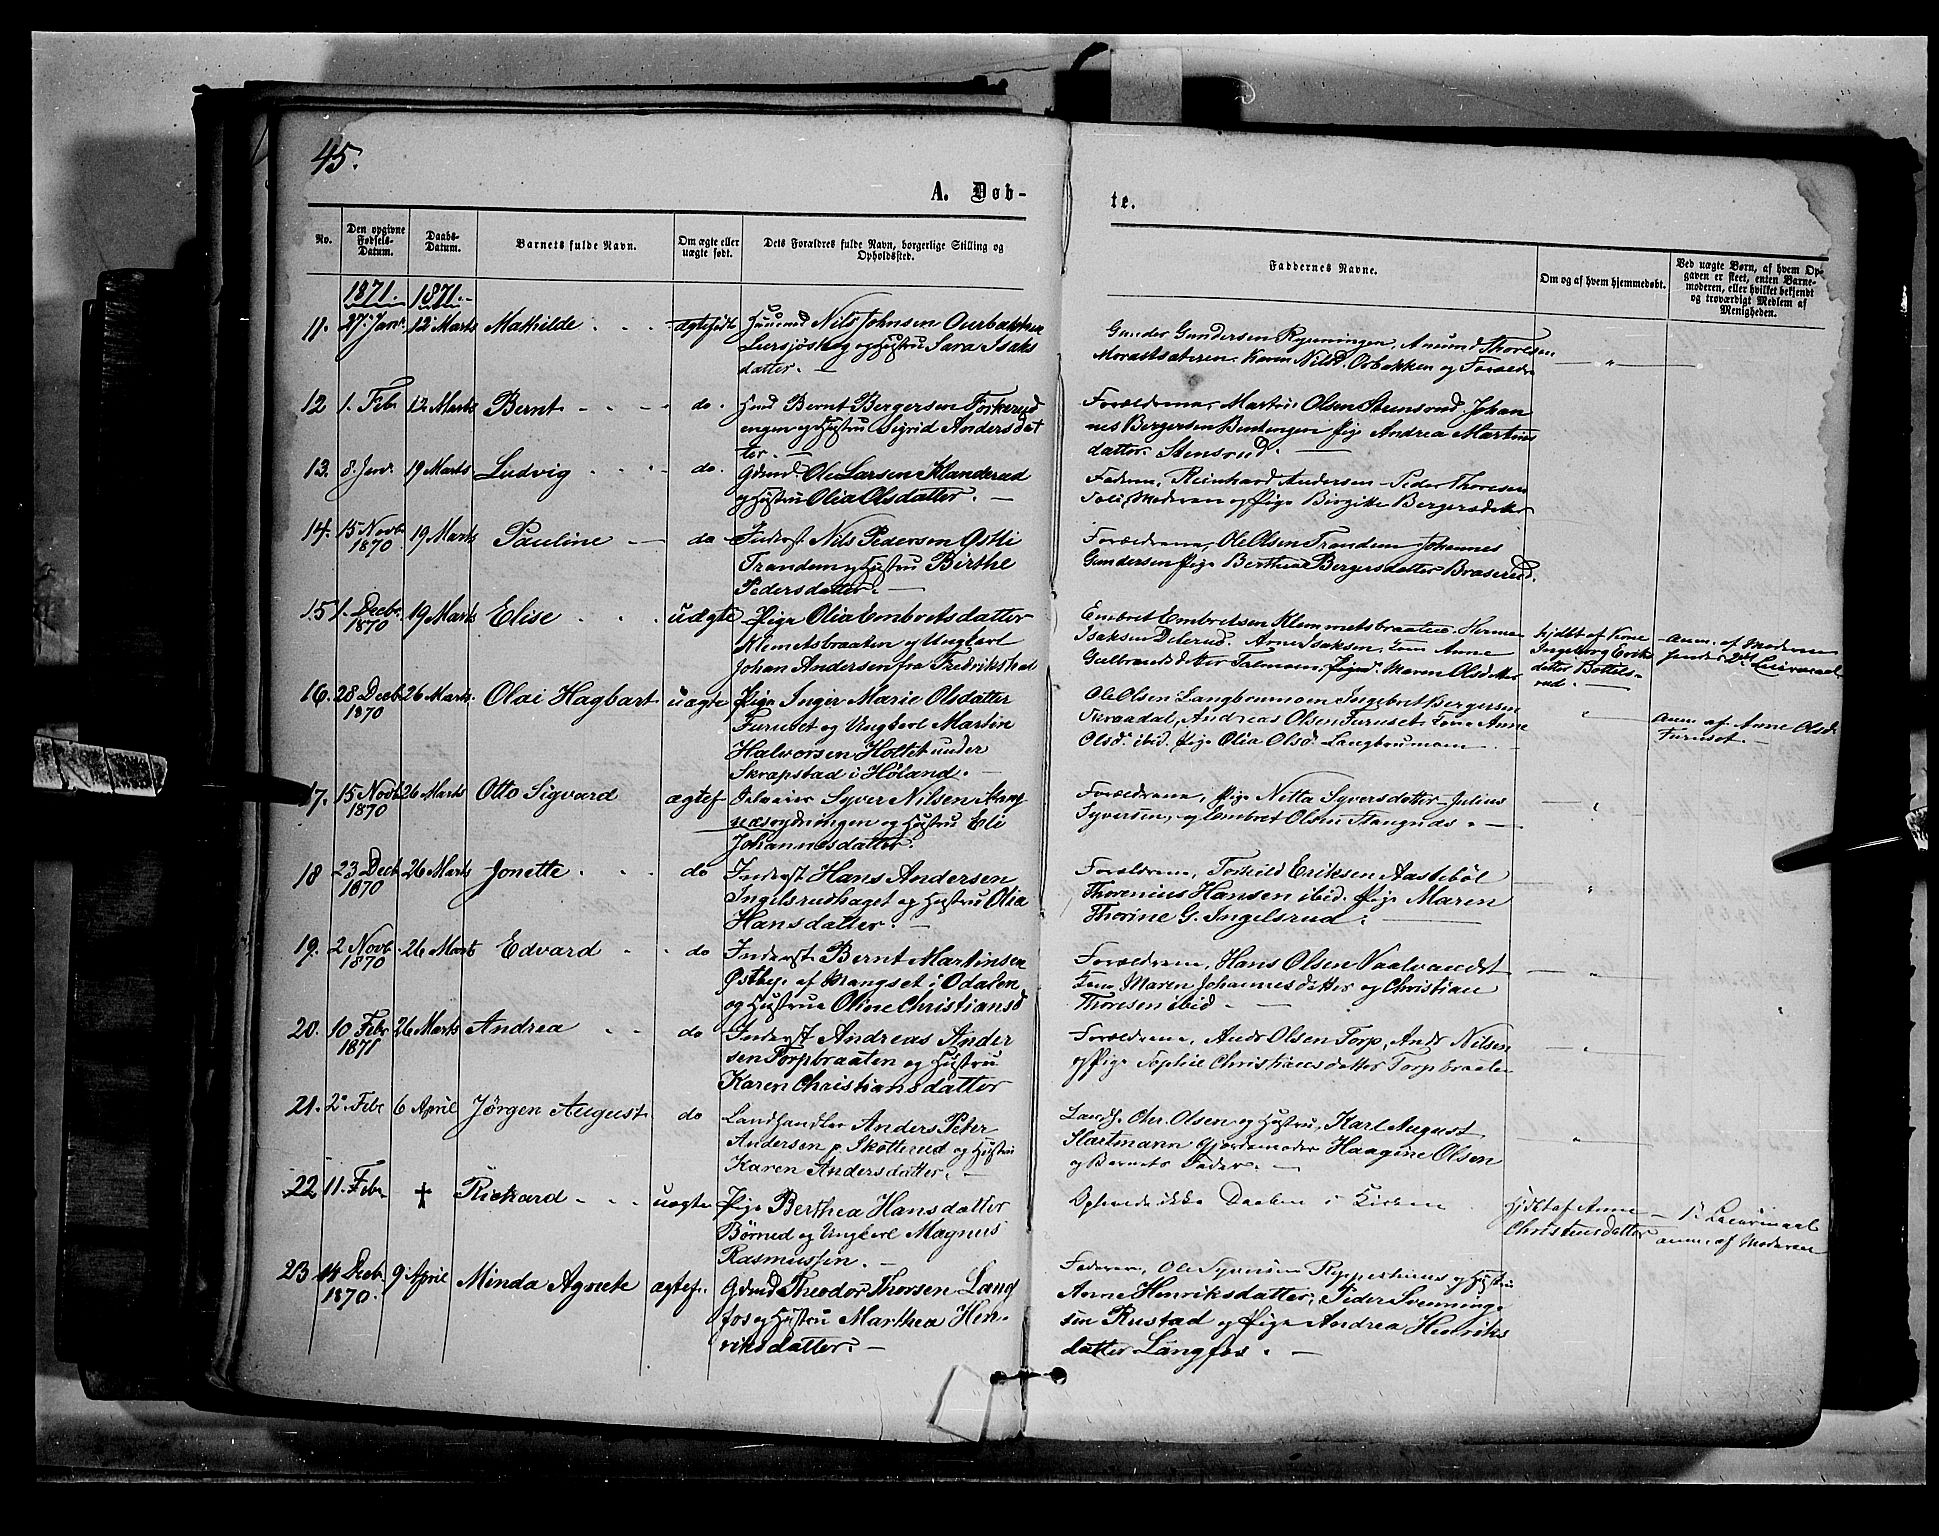 45.
A. Døb-
te.
No.
Den opgivne Fødsels-Datum.
Daabs-Datum.
Barnets fulde Navn.
Om ægte eller uægte født.
Dets Forældres fulde Navn, borgerlige Stilling og Opholdssted.
Faddernes Navne.
Om og af hvem hjemmedøbt.
Ved uægte Børn, af hvem Op-
gaven er skeet, enten Barne-
moderen, eller hvilket bekjendt
og troværdigt Medlem af
Menigheden.
1871. 1871.
11. 27 Janr. 12 Marts Mathilde ægtefødt Huusmd Nils Johnsen Ourbakken
og Hustru Sara Isaks
datter.
Gunder Gundersen Rynningen, Amund Thoresen
Morastsæteren. Karen Nilsd. Orbakken og Forældre
12 1. Febr 12 Marts Bernt do. Hmd Bernt Bergersen Torkerud
engen og Hustru Sigrid Andersdat
ter.
Forældrene, Martin Olsen Stensrud Johan
nes Bergersen Pige Andrea Martins
datter Stensrud.
13. 8 Janr. 19 Marts Ludvig do. Gdmd Ole Larsen Klanderud
og Hustru Olia Olsdatter.
Faderen, Reinhard Andersen Peder Thoresen
Moderen og Pige Birgitte Bergersdatter
14. 15 Novb. 1870 19 Marts Pauline do Inderst Nils Pedersen Østli
Trandem og Hustru Birthe
Pedersdatter.
Forældrene, Ole Olsen Trandem Johannes
Gundersen Pige Berthea Bergersdatter Braserud.
15 1. Decbr. 1870 19 Marts Elise uægte Pige Olia Embretsdatter
Klemetsbraaten og Ungkarl
Johan Andersen fra Fredrikshal
Embret Embretsen Klemmetsbraaten. Herman
Isaksen Arne Isaksen, Anne
Gulbrandsdatter Talmoen, Pigen Maren Olsdatter
hjdbt af Kone
Ingeborg Erik
datter Bottels-
rud.
anm. af Moderen
2det Leiermaal
16. 28 Decb. 1870 26 Marts. Olai Hagbart uægte Pige Inger Marie Olsdatter
Furuset og Ungkarl Martin
Halvorsen Holtet under
Skrapstad i Høland.
Ole Olsen Langbrumoen Ingebret Bergersen
Andreas Olsen Furuset. Kone Anne
Olsd. ibid. Pige Olia Olsd. Langbrumoen
anm. af Anne Olsd.
Furuset.
17. 15 Novb. 1870 26 Marts Otto Sigvard ægtef Selveier Syver Nilsen Stang
næsrydningen og Hustru Eli
Johannesdatter.
Forældrene, Pige Netta Syversdatter Julius
Syversen, og Embret Olsen Stangnæs.
18 23 Decb 1870 26 Marts Jonette do Inderst Hans Andersen
Ingelsrudhaget og Hustru Olia
Hansdatter.
Forældrene, Torkild Eriksen Aastebøl
Thorenius Hansen ibid. Pige Maren
Thorine G. Ingelsrud.
19. 2 Novb 1870 26 Marts Edvard do Inderst Bernt Martinsen
Østbye af Mangset i Odalen
og Hustrue Oline Christiansd
Forældrene, Hans Olsen Vaalvandet
Kone Maren Johannesdatter og Christian
Thoresen ibid.
20. 10 Febr 1871 26 Marts Andrea do Inderst Andreas Ander
sen Torpbraaten og Hustru
Karen Christiansdatter
Forældrene, Andr Olsen Torp, Andr Nilsen
og Pige Sophie Christiansdatter Torpbraaten
21. 2. Febr 6 April Jørgen August do Landhandler Anders Peter
Andersen p. Skotterud og Hustru
Karen Andersdatter.
Landh. Chr. Olsen og Hustru, Karl August
Hartmann Gjordemoder Haagine Olsen
og Barnets Fader.
22 11. Febr † Rickard uægte Pige Berthea Hansdatter
Børrud og Ungkarl Magnus
Rasmussen.
Oplevede ikke Daaben i Kirken
Hjdbt af Anne
Christensdatter
1ste Leiermaal
anm. af Moderen
23. 14 Decb. 1870. 9 April Minda Agnete ægtef. Gdmd Theodor Thorsen Lang
fos og Hustru Marthea Hen-
riksdatter.
Faderen, Ole Syversen og Hustru
Anne Henriksdatter, Peder Svenning-
sen Rustad og Pige Andrea Henriks
datter Langfos.